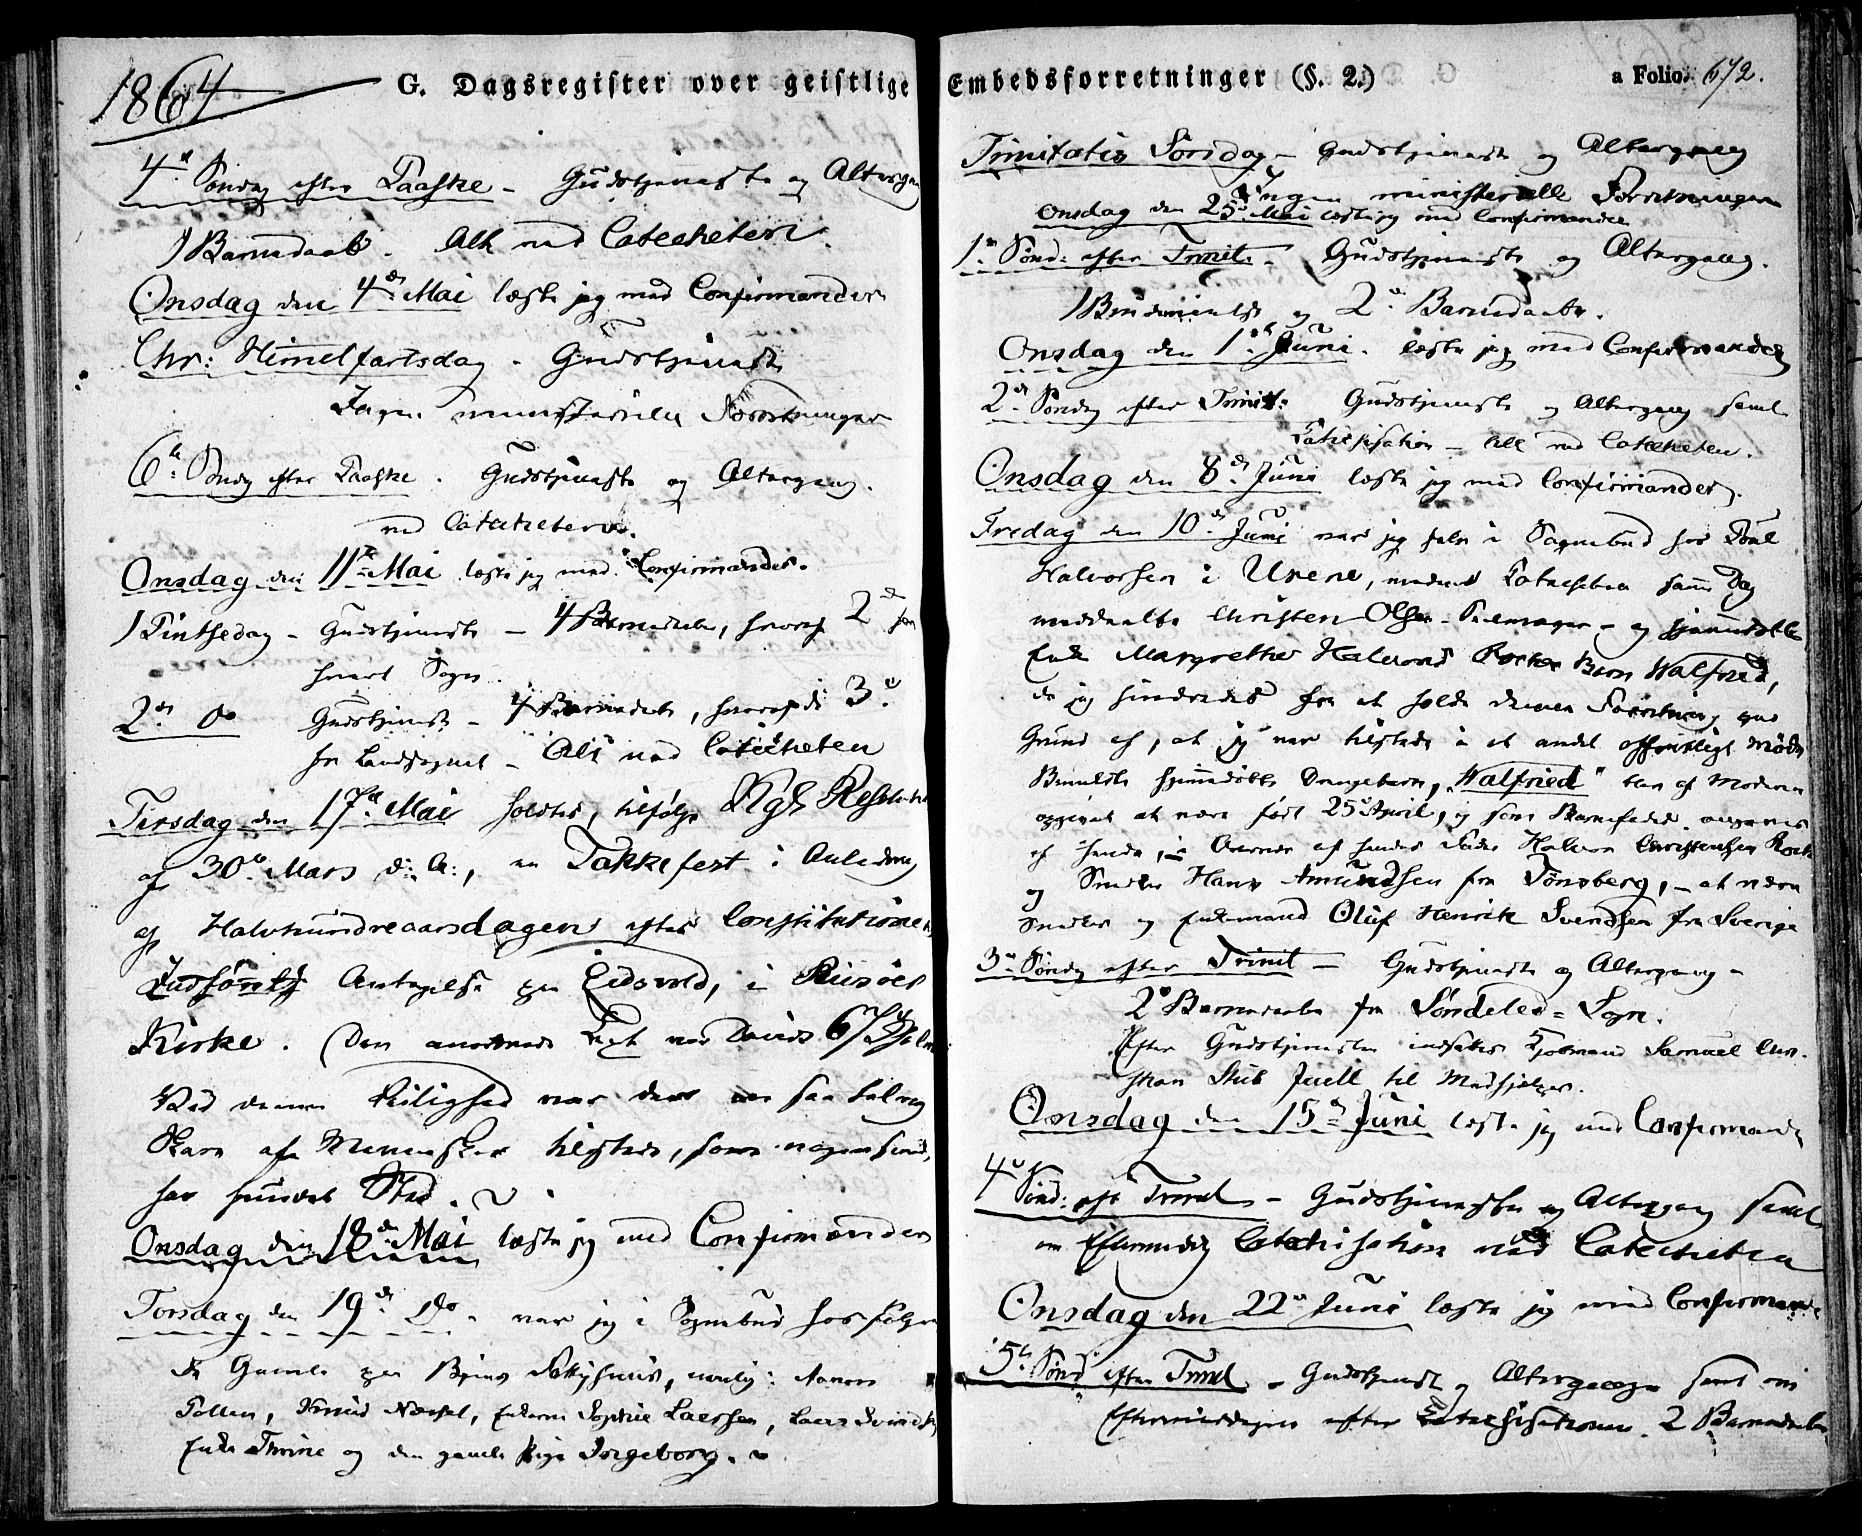 1864
G. Dagsregister over geistlige
4de Søndag efter Paaske - Gudstjeneste og Altergang
1 Barnedaab. Alt ved Catecheten.
Onsdag den 4de Mai læste jeg med Confirmander
Chr: Himmelfartsdag - Gudstjeneste
Ingen ministerielle Forretninger
6te Søndag efter Paaske. Gudstjeneste og Altergang.
ved Catecheten.
Onsdag den 11te Mai læste jeg med Confirmander.
1 Pintsedag - Gudstjeneste - 4 Barnedaabe, hvoraf 2de for
hvert Sogn.
2den do Gudstjeneste - 4 Barnedaabe, hvoraf de 3de
for Landsognet - Alt ved Catecheten
Tirsdag den 17de Mai holdtes, tilfølge Kgl. Resolution
af 30te Mars d: A:, en Takkefest i Anledning
af Halvhundreaarsdagen efter Constitutionens
Antagelse paa Eidsvold, i Risøers
Kirke. Den anordnede Text var Davids 67 Psalme
Ved denne Leilighed var der en saa talrig
Skare af Mennesker tilstede, som nogensinde
har fundet Sted.
Onsdag den 18de Mai læste jeg med Confirmanderne
Torsdag den 19de Do - var jeg i Sognebud hos følgen
de Gamle paa Byens Fattighuus, nemlig:
Knud Næshel, Enkerne Sophie Larssen, Lars
Enke Thrine og den gamle Pige Ingeborg.
Embedsforretninger (§. 2.)
a Folio. 672.
Trinitatis Søndag - Gudstjeneste og Altergang
Ingen ministerielle Forretninger
Onsdag den 25de Mai læste jeg med Confirmander
1ste Sønd: efter Trinit. - Gudstjeneste og Altergang.
1 Brudevielse og 2de Barnedaabe.
Onsdag den 1ste Juni. læste jeg med Confirmander
2den Søndag efter Trinit: Gudstjeneste og Altergang samt
Catechisation - Alt ved Catecheten.
Onsdag den 8de Juni læste jeg med Confirmander.
Fredag den 10de Juni var jeg selv i Sognebud hos Poul
Halvorsen i Urene, medens Catecheten samme Dag
meddeelte Christen Olsen - og hjemmedøbte
Enke Margrethe Halvors Barn Walfried,
da jeg hindredes fra at holde denne Forretning paa
Grund af, at jeg var tilstede i et andet offentligt Møde
Benævnte hjemmedøbte Drengebarn, "Walfried" blev af Moderen
opgivet at være født 25de April, og som Barnefader angaves
af hende, i Overvær af hendes Fader Halvor Christensen
og Snedker Hans Amundsen fra Tønsberg, - at være
Snedker og Enkemand Oluf Henrik Svendsen fra Sverige
3die Søndag efter Trinit - Gudstjeneste og Altergang -
2de Barnedaabe fra Søndeled = Sogn.
Efter Gudstjenesten indsattes Kjøbmand Samuel Chri-
stian Stub Juell til Medhjælper.
Onsdag den 15de Juni læste jeg med Confirmander
4de Sønd: eft Trinit - Gudstjeneste og Altergang samt
om Eftermiddag Catechisation ved Catecheten
Onsdag den 22de Juni læste jeg med Confirmander
5te Sønd efter Trinit - Gudstjeneste og Altergang samt om
Eftermiddagen efter Catechisationen. 2 Barnedaabe